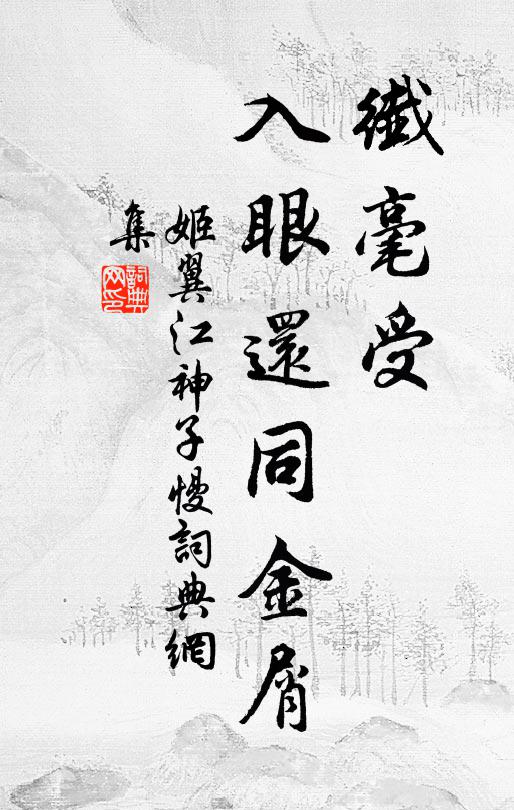 纖毫受
入眼還同金屑
姬翼江神子慢詞典網
集
詞典網印